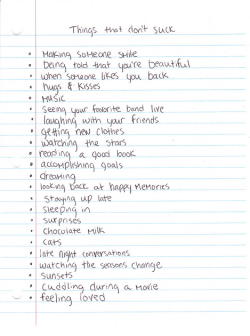 Things that don't suck
• Making someone smile
• Being told that you're beautiful
• when someone likes you back
• hugs & kisses
• MUSIC
• Seeing your favorite band live
• laughing with your friends
• getting new clothes
• watching the stars
• reading a good book
• accomplishing goals
• dreaming
• looking back at happy memories
• Staying up late
• Sleeping in
• surprises
• Chocolate Milk
• cats
• late night conversations
• watching the seasons change
• sunsets
• Cuddling during a Movie
• feeling loved